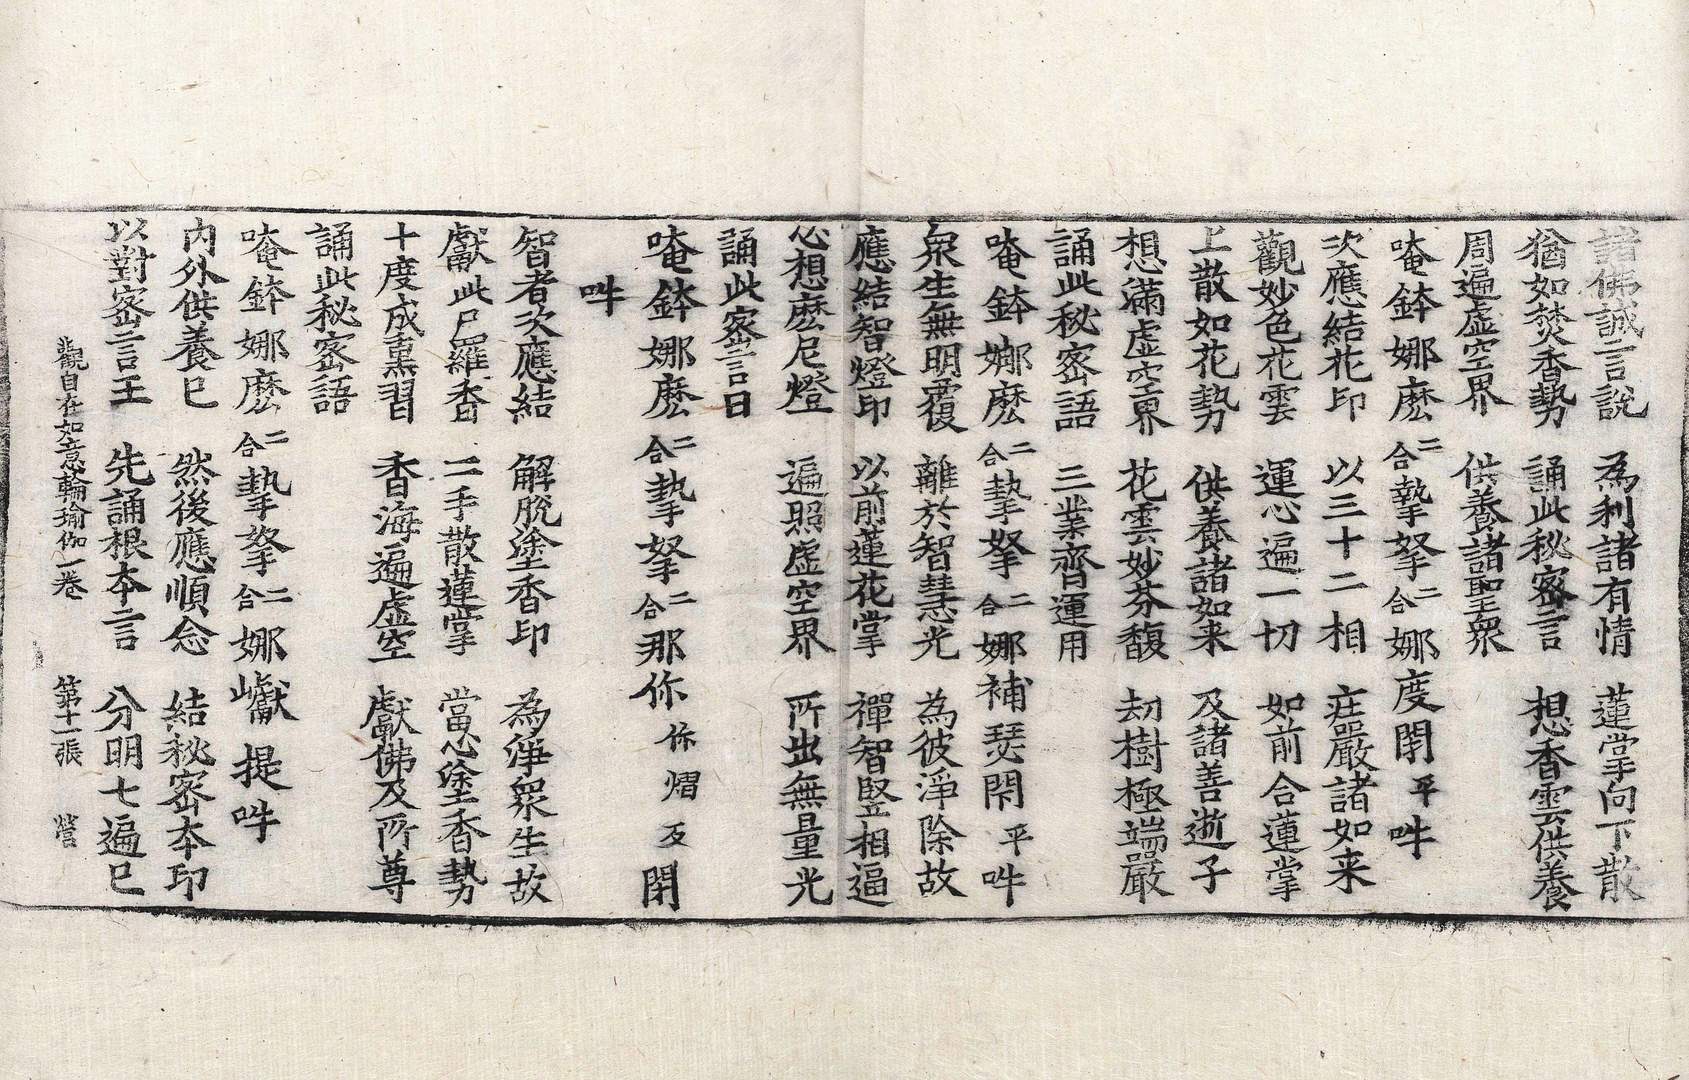 諸佛誠言說　為利諸有情　蓮掌向下散
猶如焚香勢　誦此秘密言　想香雲供養
周遍虛空界　供養諸聖衆
唵鉢娜麽二合摯拏二合娜度閉平吽
次應結花印　以三十二相　莊嚴諸如来
觀妙色花雲　運心遍一切　如前合蓮掌
上散如花勢　供養諸如来　及諸善逝子
想滿虛空界　花雲妙芬馥　劫樹極端嚴
誦此秘密語　三業齊運用
唵鉢娜麽二合摯拏二合娜補瑟閇平吽
衆生無明覆　離於智慧光　為彼淨除故
應結智燈印　以前蓮花掌　禪智竪相逼
心想麽尼燈　遍照虛空界　所出無量光
誦此密言曰
唵鉢娜麽二合摯拏二合那你你熠反閇
吽
智者次應結　解脫塗香印　為淨衆生故
獻此尸羅香　二手散蓮掌　當心塗香勢
十度成熏習　香海遍虛空　獻佛及所尊
誦此秘密語
唵鉢娜麽二合摯拏二合娜巘提吽
內外供養已　然後應順念　結秘密本印
以對密言王　先誦根本言　分明七遍已
觀自在如意輪瑜伽一卷　第十一張　營